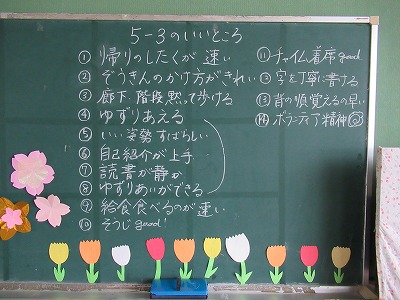 5-3のいいところ
① 帰りのしたくが 速い
② ぞうきんのかけ方がきれい
③ 廊下、階段黙って歩ける
④ ゆずりあえる
⑤ いい姿勢 すばらしい
⑥ 自己紹介が上手
⑦ 読書が静か
⑧ ゆずりあいができる
⑨ 給食食べるのが 速い
⑩ そうじ good!
⑪ チャイム着席 good
⑫ 字を丁寧に書ける
⑬ 背の順覚えるの早い
⑭ ボランティア精神